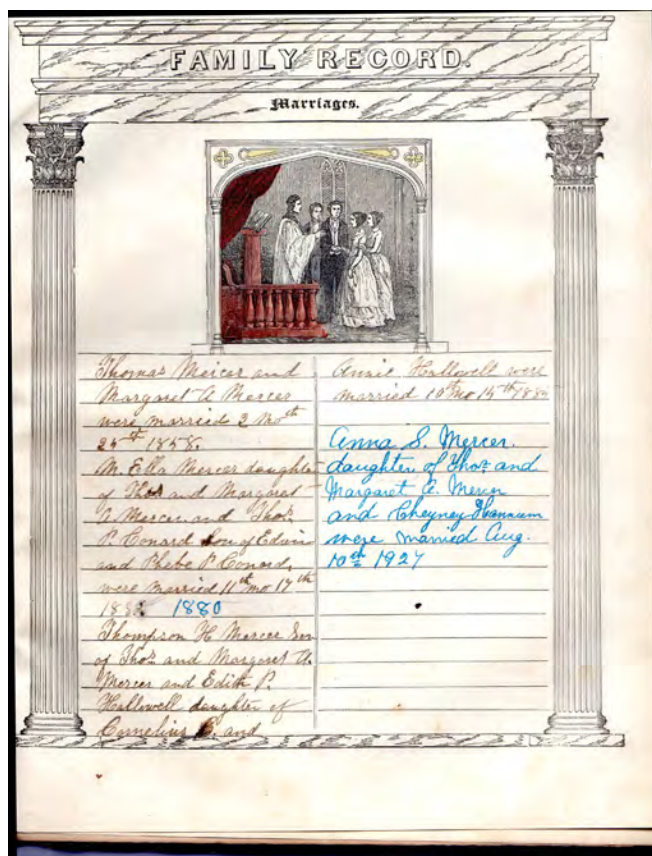 FAMILY RECORD.
Marriages.
Thomas Mercer and
Margaret A Mercer
were married 2 Mo th
25th 1858.
M. Ella Mercer daughter
of Thos and Margaret
A Mercer and Thos.
P. Conard Son of Edwin
and Phebe P Conard,
were married 11th mo 17th
1880
Thompson H Mercer Son
of Thos and Margaret A.
Mercer and Edith P.
Hallowell daughter of
Cornelius and
Annie Hallowell were
married 10th mo 15th
Anna S. Mercer.
daughter of Thos and
Margaret A. Mercer
and Cheyney Hannum
were married Aug.
10th 1927